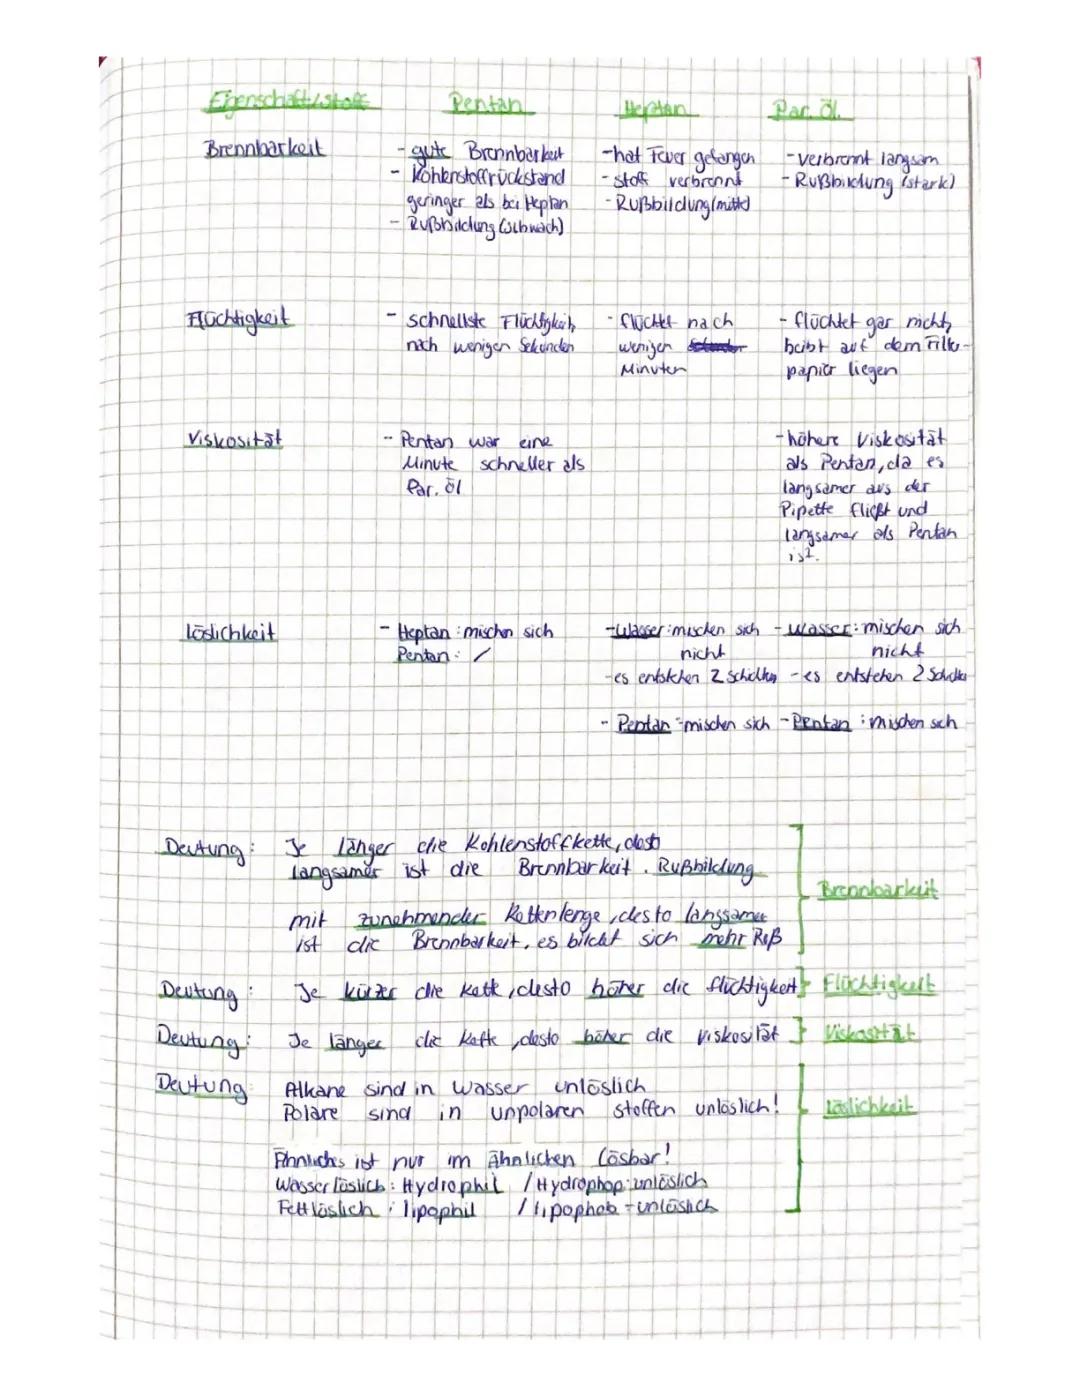 Eigenschaft/stoff Pentan Heptan Par. Öl.
Brennbarkeit
- gute Brennbarkeit
- Kohlenstoffrückstand
geringer als bei Heptan
- Rußbildung (schwach)
- hat Feuer gefangen
- stoff verbrennt
- Rußbildung (mittel)
- verbrennt langsam
- Rußbildung (stark)
Flüchtigkeit
- schnellste Flüchtigkeit,
nach wenigen Sekunden
- flüchtet nach
wenigen
Minuten
- flüchtet gar nicht,
beibt auf dem Filter-
papier liegen
Viskosität
- Pentan war eine
Minute schneller als
Par. Öl
- höhere Viskosität
als Pentan, da es
langsamer aus der
Pipette fließt und
langsamer als Pentan
ist.
Löslichkeit
- Heptan: mischen sich
Pentan: /
- Wasser: mischen sich
nicht
- es entstehen 2 Schichten
- Pentan - mischen sich
- Wasser: mischen sich
nicht
- es entstehen 2 Schichten
- Pentan: mischen sich
Deutung: Je länger die Kohlenstoffkette, desto
langsamer ist die Brennbarkeit. Rußbildung
mit zunehmender Kettenlenge, desto langsamer
ist die Brennbarkeit, es bildet sich mehr Ruß
Brennbarkeit
Deutung: Je kürzer die Kette, desto höher die flüchtigkeit Flüchtigkeit
Deutung: Je länger die Kette, desto höher die Viskosität Viskosität
Deutung: Alkane sind in Wasser unlöslich
Polare sind in unpolaren stoffen unlöslich!
Löslichkeit
Ähnliches ist nur im Ähnlichen lösbar!
Wasserlöslich: Hydrophil / Hydrophop: unlöslich
Fettlöslich: lipophil / lipophob - unlöslich